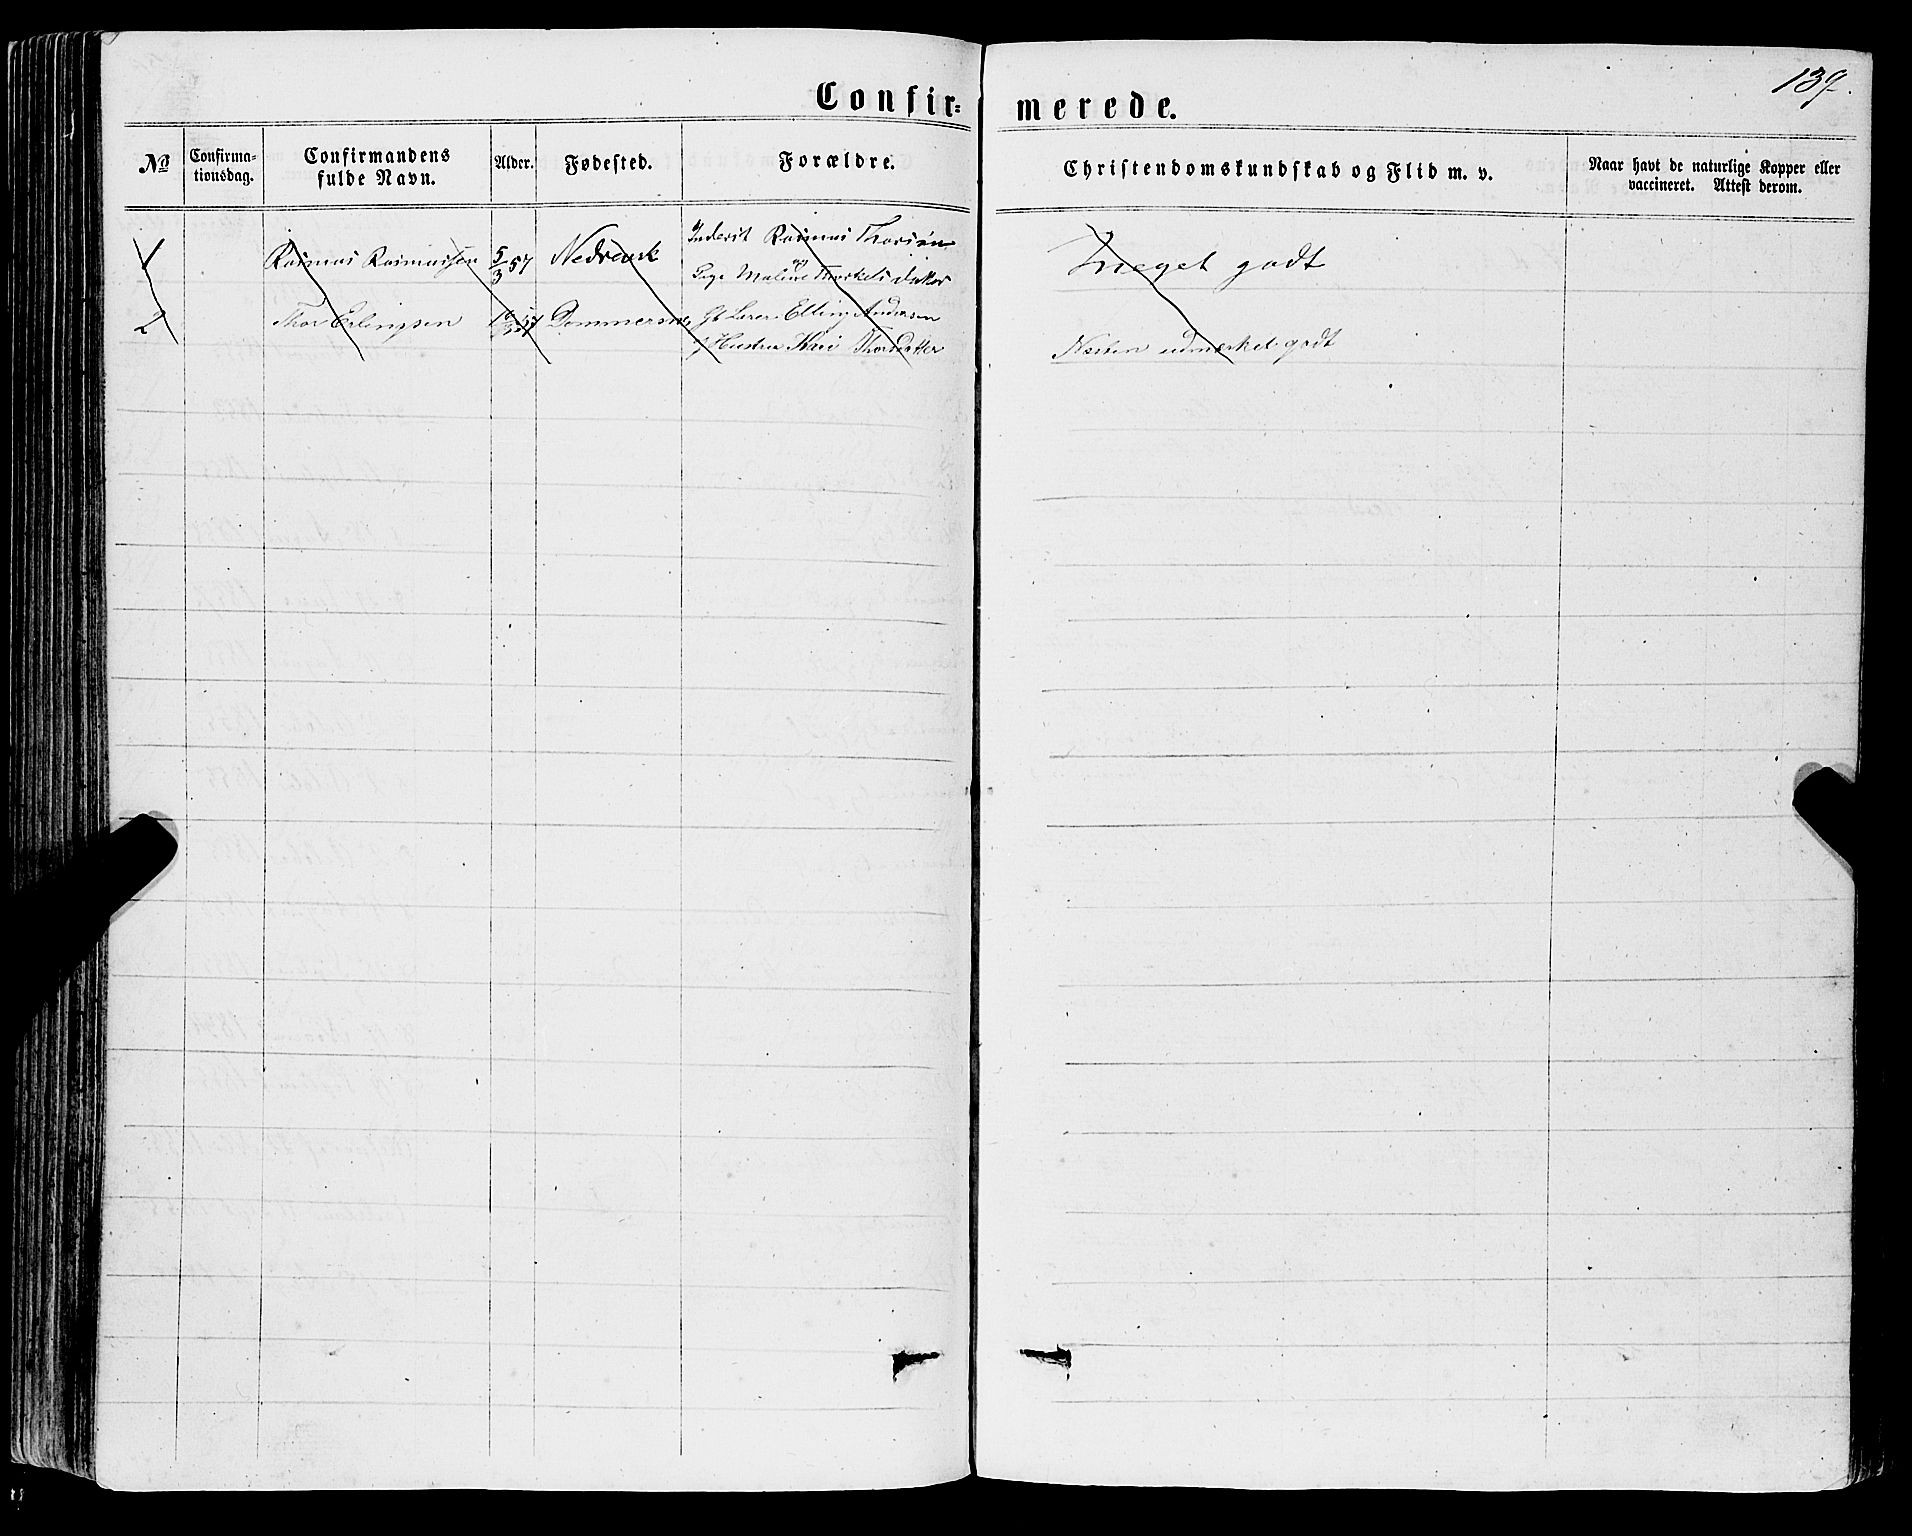 139.
Confir= merede.
No
Confirma-
tionsdag.
Confirmandens
fulde Navn.
Alder.
Fødested.
Forældre.
Christendomskundskab og Flid m. v.
Naar havt de naturlige Kopper eller
vaccineret. Attest derom.
1 Rasmus Rasmussen 5/3 57 Nedrevik Inderst Rasmus
Pige Maline Thorkelsdatter
meget godt
2 Thor Erlingsen 57 Elling Andersen
Hustru Kari Thorsdatter
Næsten udmærket godt